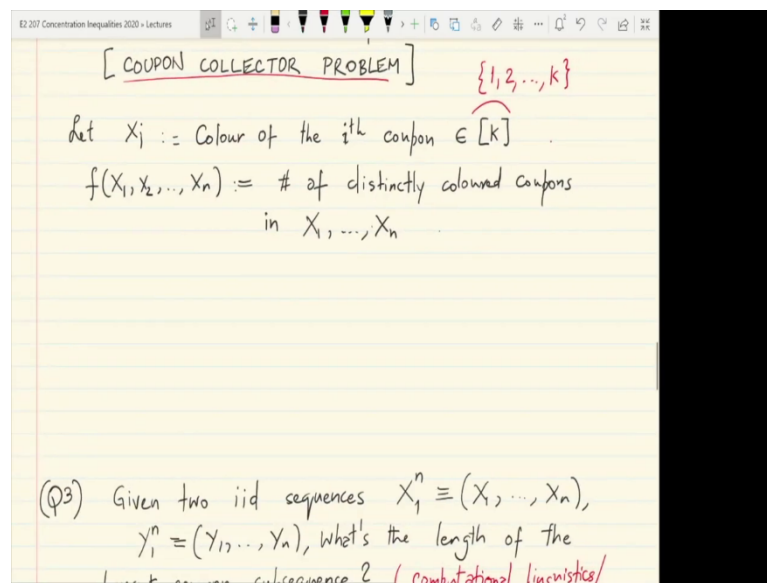 E2 207 Concentration Inequalities 2020 » Lectures
[ COUPON COLLECTOR PROBLEM ]
{1, 2, ..., k}
Let Xi := Colour of the ith coupon ∈ [k] .
f(X1, X2, .., Xn) := # of distinctly coloured coupons
in X1, ..., Xn .
(Q3) Given two iid sequences X₁ⁿ ≡ (X1, ..., Xn),
Y₁ⁿ = (Y1, .., Yn), what's the length of the
common subsequence ? ( computational linguistics/